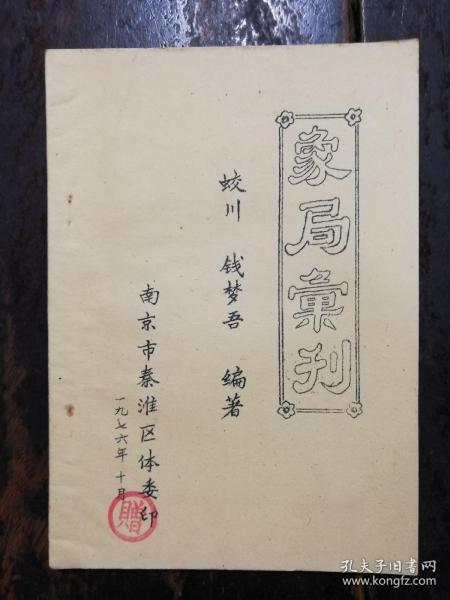 象局彙刊
蛟川 钱梦吾 编著
南京市秦淮区体委印
一九七六年十月
贈
孔夫子旧书网
www.kongfz.com